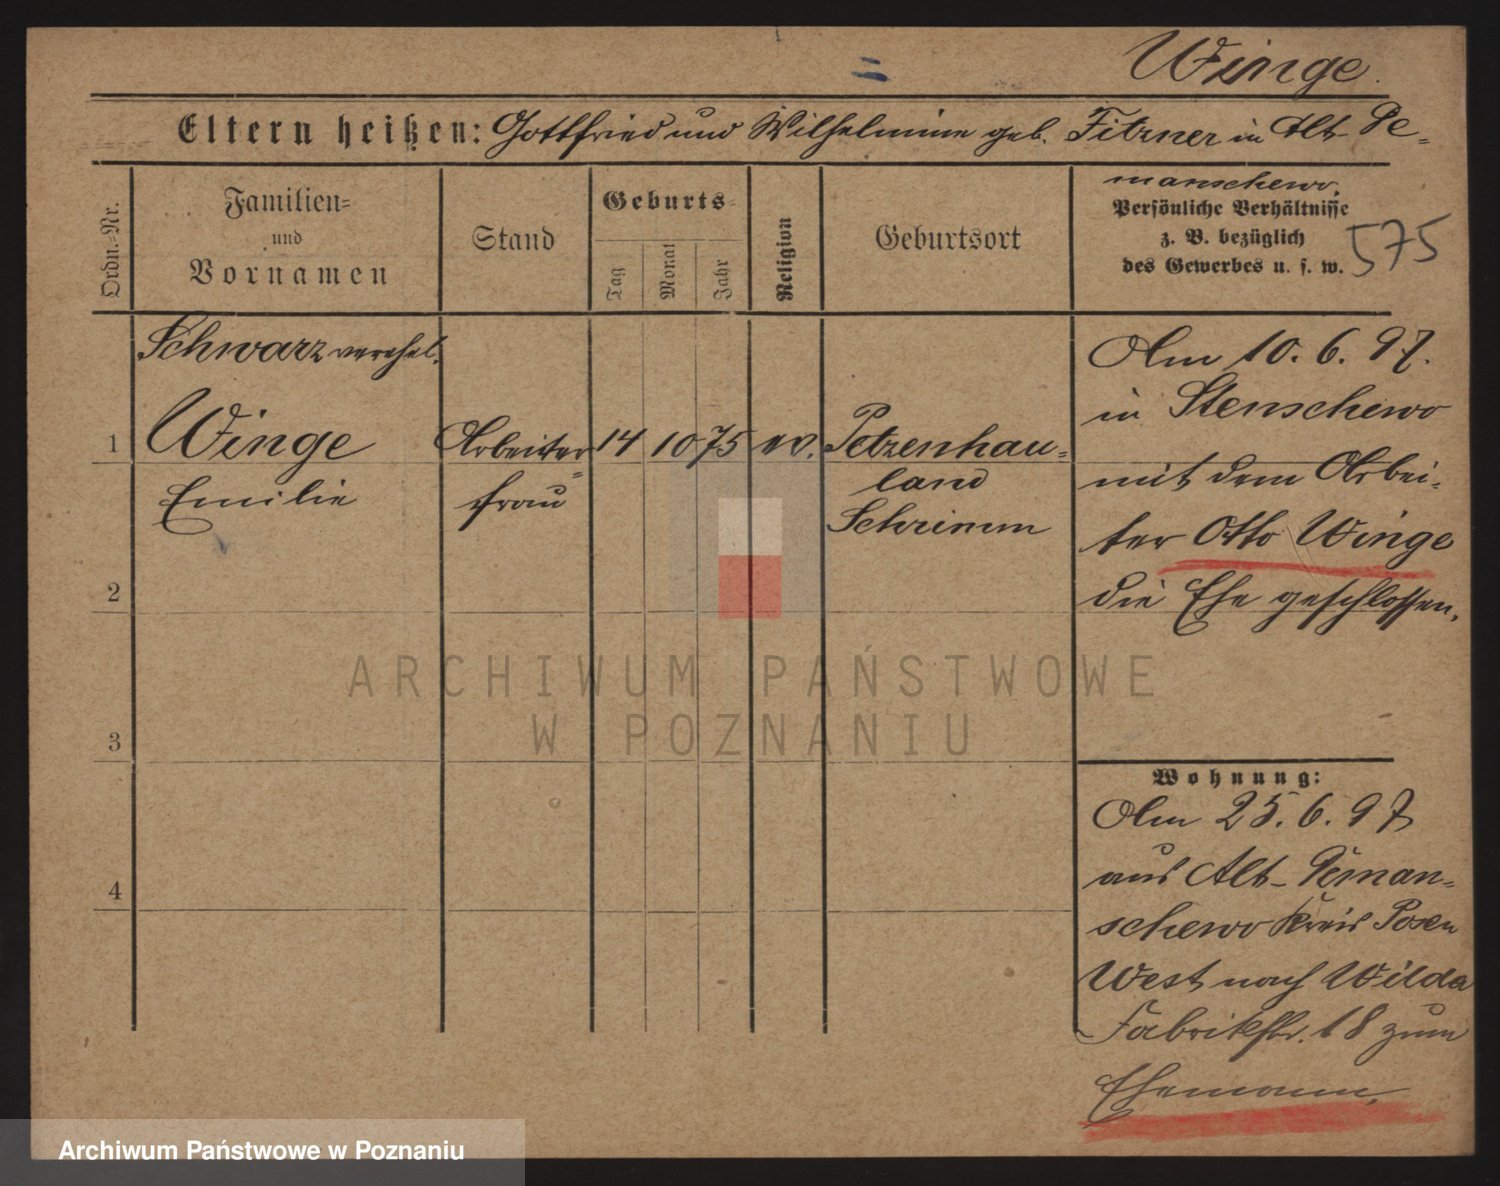 Winge.
Eltern heißen: Gottfried und Wilhelmine geb. Fitzner in Alt-Pe-
manschewo.
Ordn.-Nr.
Familien-
und
Vornamen
Stand
Geburts-
Tag
Monat
Jahr
Religion
Geburtsort
Persönliche Verhältnisse
z. B. bezüglich
des Gewerbes u. s. w.
575
Schwarz verehel.
1 Winge Arbeiter- 14 10 75 ev. Petzenhau-
Emilie frau land
Schrimm
2
3
4
Am 10. 6. 97.
in Stenschewo
mit dem Arbei-
ter Otto Winge
die Ehe geschlossen.
Wohnung:
Am 25. 6. 97
aus Alt-Peman-
schewo Kreis Posen
West nach Wilda
Fabrikstr. 18 zum
Ehemann.
ARCHIWUM PAŃSTWOWE
W POZNANIU
Archiwum Państwowe w Poznaniu